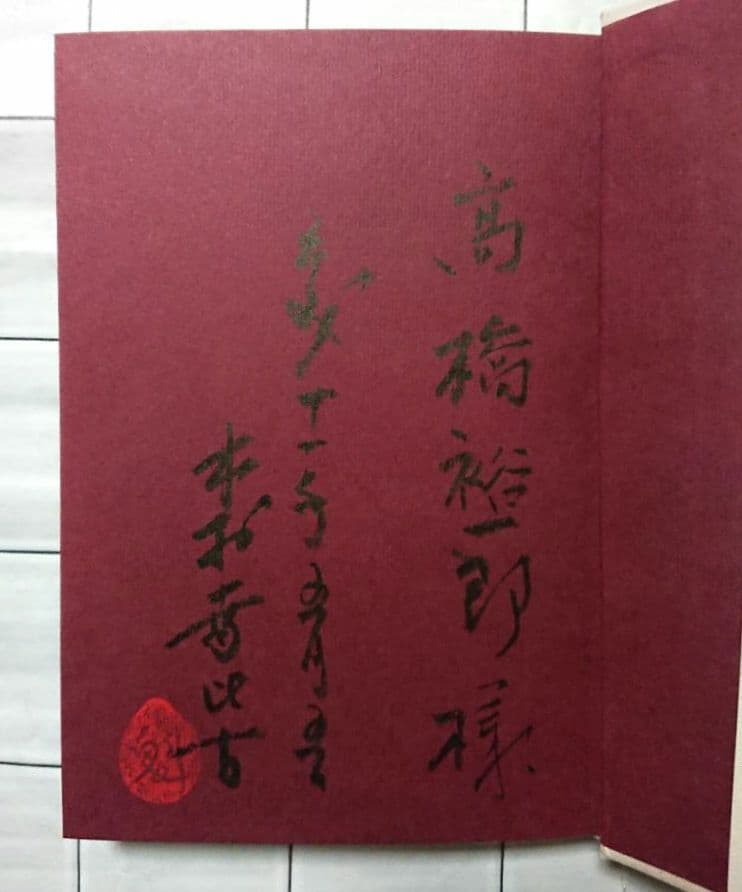 高橋裕一郎様
平成十一年五月五日
木村比古